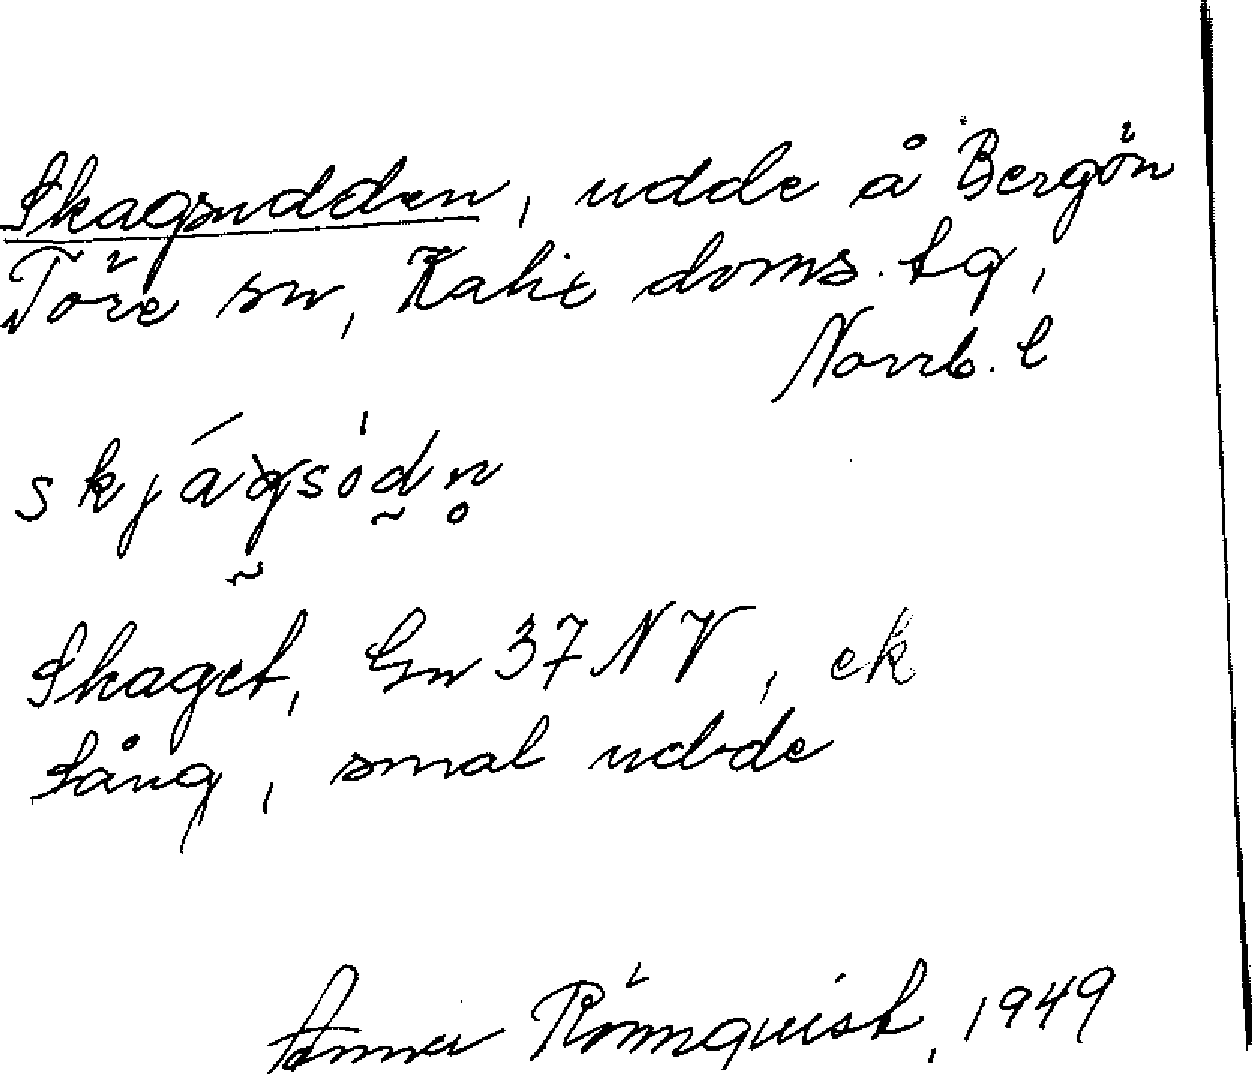 Skagsudden, udde å Bergön
Töre sn, Kalix doms. tg,
Norrb. l
skjágsódn̥
Skaget, Gn 37 NV, ek
Lång, smal udde
Anna Rönnquist, 1949